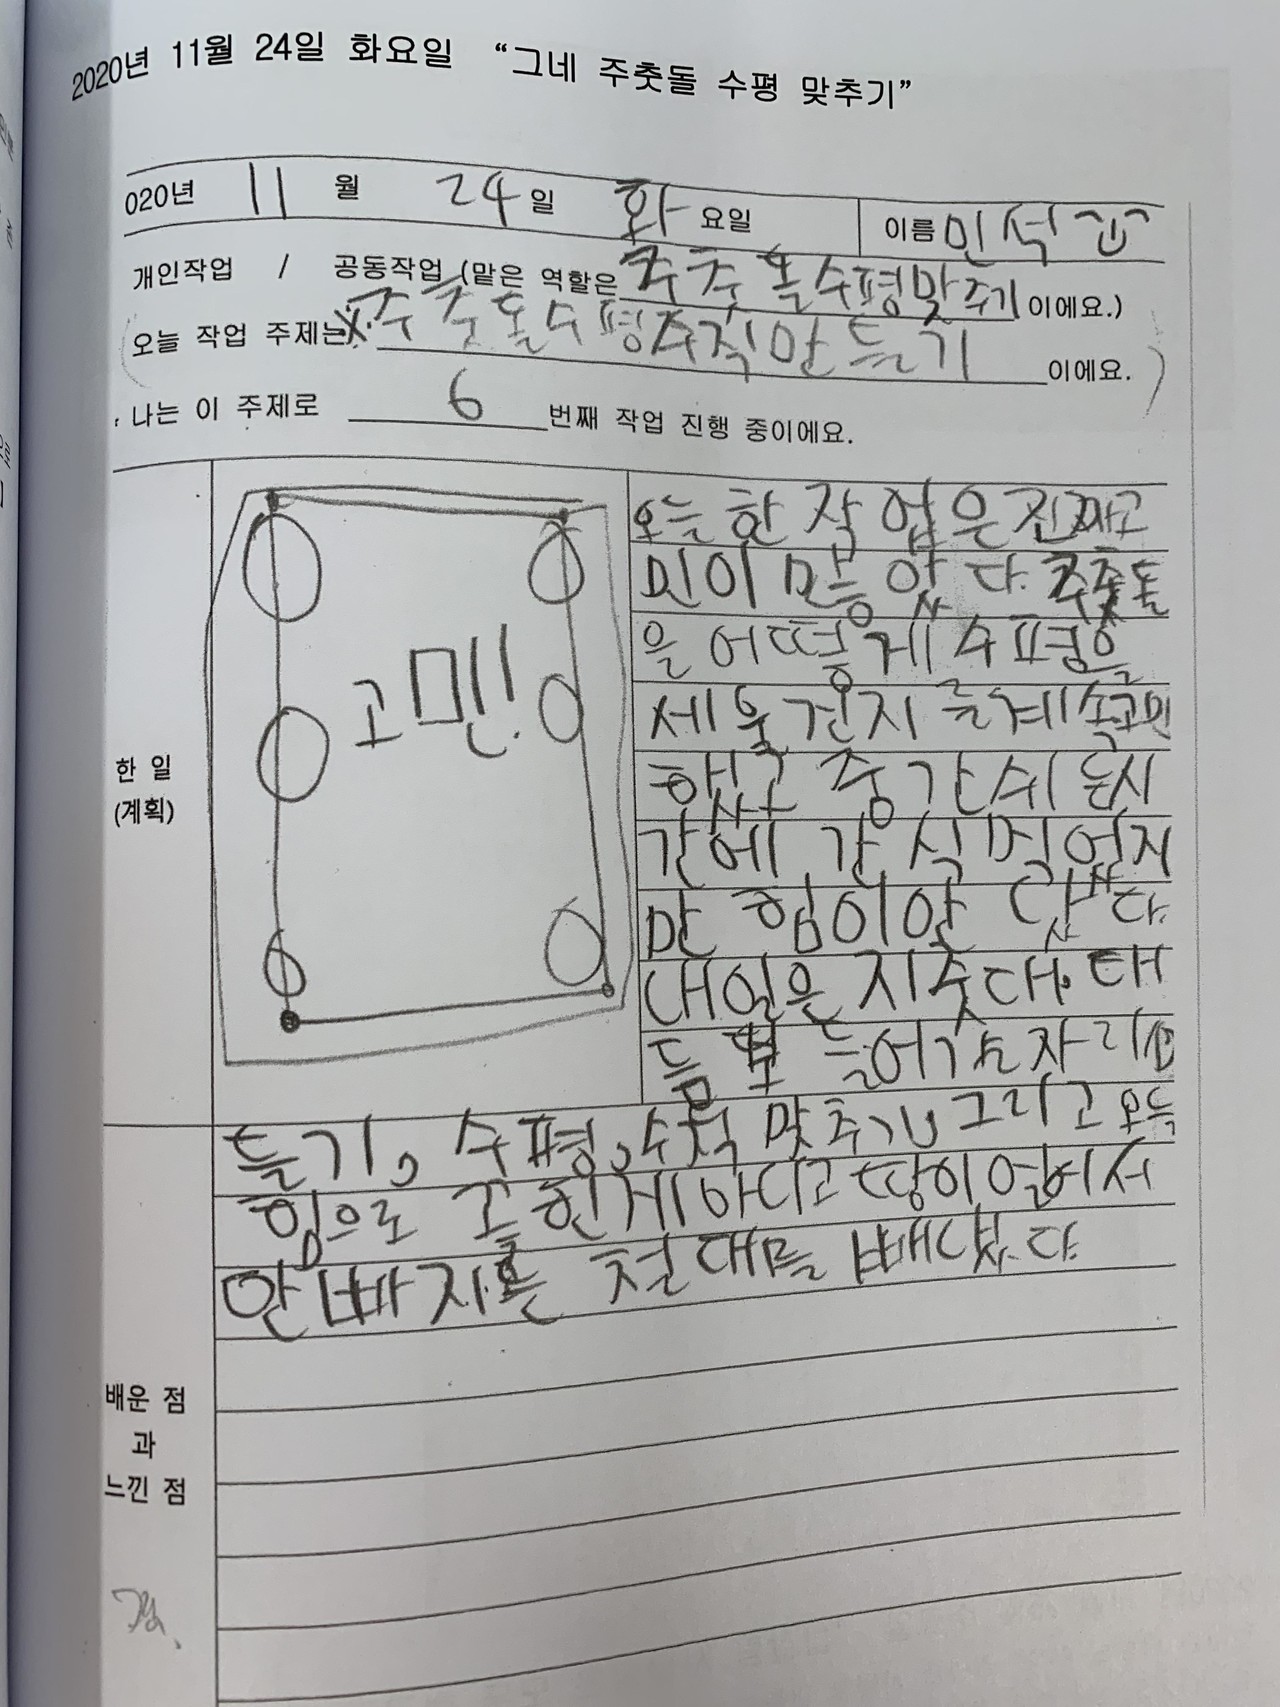 2020년 11월 24일 화요일 “그네 주춧돌 수평 맞추기”
020년 11 월 24 일 화 요일 이름 민석
개인작업 / 공동작업 (맡은 역할은 주추돌수평맞추기 이에요.)
오늘 작업 주제는 주추돌수평수직만들기 이에요.
나는 이 주제로 6 번째 작업 진행 중이에요.
고민!
한 일
(계획)
오늘 한 작 업은 진짜고
민이 많았다. 주춧돌
을 어떻게 수평을
세울건지 를계속고민
했고 중간쉬는시
간에 간식먹었지
만 힘이안 났다.
내일은 지줏대, 대
들보 들어갈자리만
들기, 수평,수직 맞추기, 그리고 오늘
힘으로 고 한게아니고 땅이얼어서
안빠지는 철대를 빼냈다.
배운 점
과
느낀 점